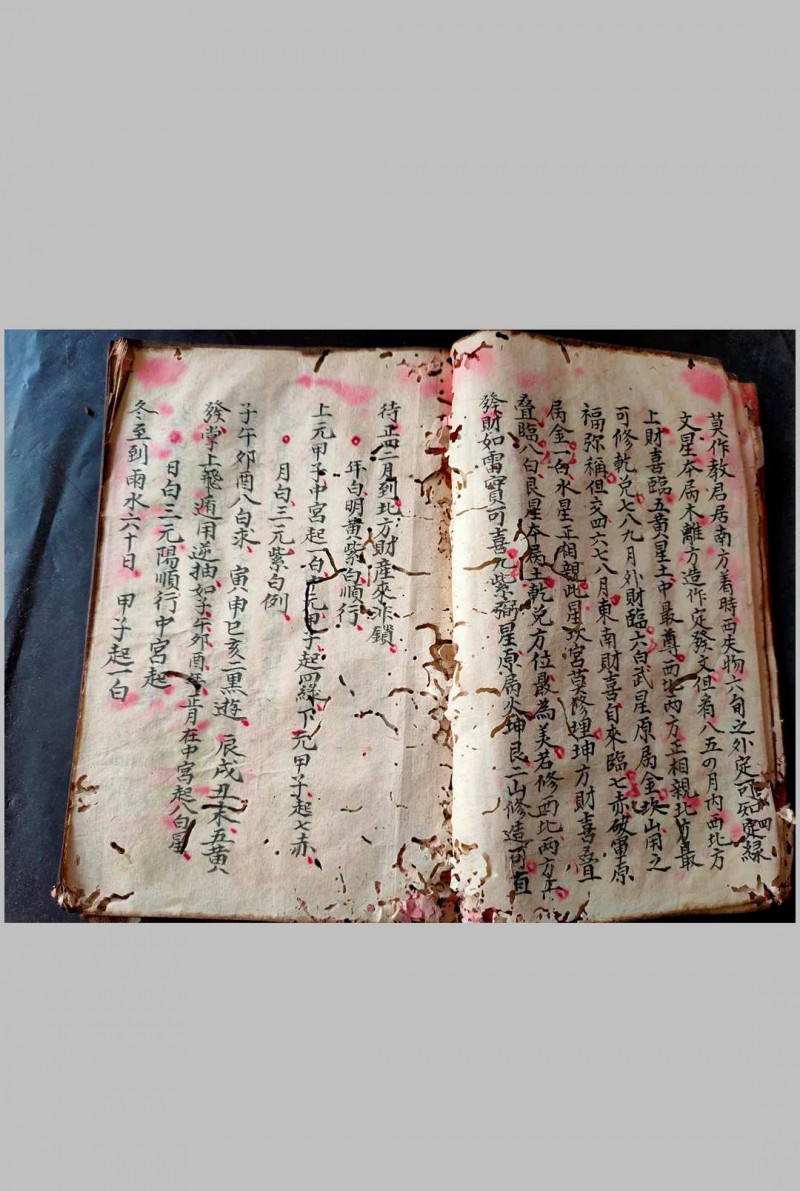 莫作教君居南方着時西失物六旬之外定可知四綠
文星本属木離方造作定發文但看八五の月内西北方
上財喜臨五黄星土中最尊西北两方正相親北方最
可修乾兑七八九月外財臨六白武星原属金坎山用之
福弥稱但交四六七八月東南財喜自來臨七赤破軍原
属金一白水星正相親此星坎宮莫修理坤方財喜叠
叠臨八白艮星本属土乾兑方位最為美若修西北两方
發財如雷寳可喜九紫弼星原属火坤艮二山修造可直
待正四二月到北方財産來非鎖
年白明黄紫白順行
上元甲子中宮起一白中元甲子起四緑下元甲子起七赤
月白三元紫白例
子午夘酉八白求寅申巳亥二黒遊辰戌丑未五黄
發掌上飛遁用逆抽如子午夘酉年正月在中宮起八白星
日白三元陽順行中宮起
冬至到雨水六十日甲子起一白